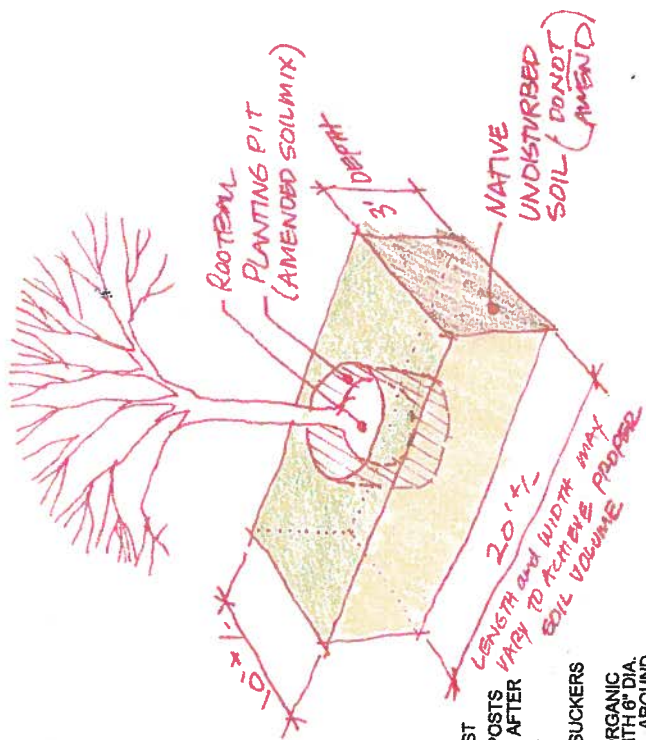 ROOTBALL
PLANTING PIT
(AMENDED SOIL MIX)
DEPTH
3'
NATIVE
UNDISTURBED
SOIL (DO NOT
AMEND)
20' +/-
LENGTH and WIDTH MAY
VARY TO ACHIEVE PROPER
SOIL VOLUME
ST
POSTS
AFTER
SUCKERS
RGANIC
TH 6" DIA.
AROUND